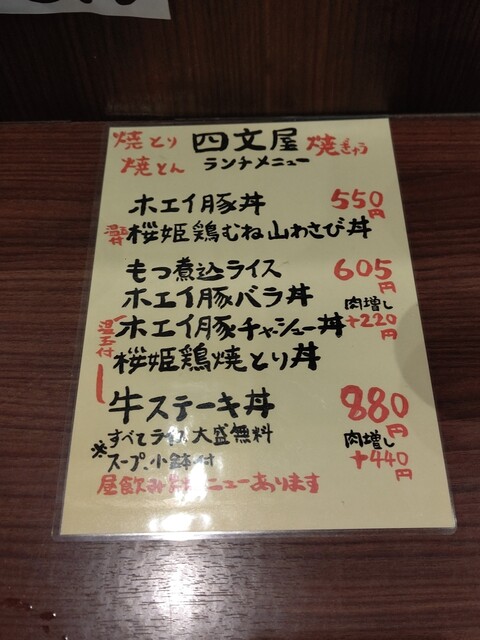 焼とり 四文屋 焼ぎゅう
焼とん ランチメニュー
ホエイ豚丼 550円
温玉付 桜姫鶏むね山わさび丼
もつ煮込ライス 605円
ホエイ豚バラ丼 肉増し
温玉付 ホエイ豚チャーシュー丼 +220円
桜姫鶏焼とり丼
牛ステーキ丼 880円
※すべて 大盛無料 肉増し
スープ、小鉢付 +440円
昼飲み メニューあります